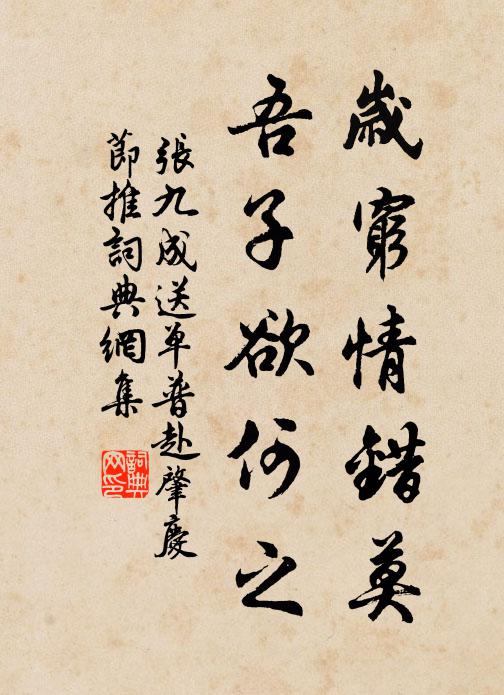 歲窮情錯莫
吾子欲何之
張九成送單普赴肇慶
節推詞典網集
詞典网印